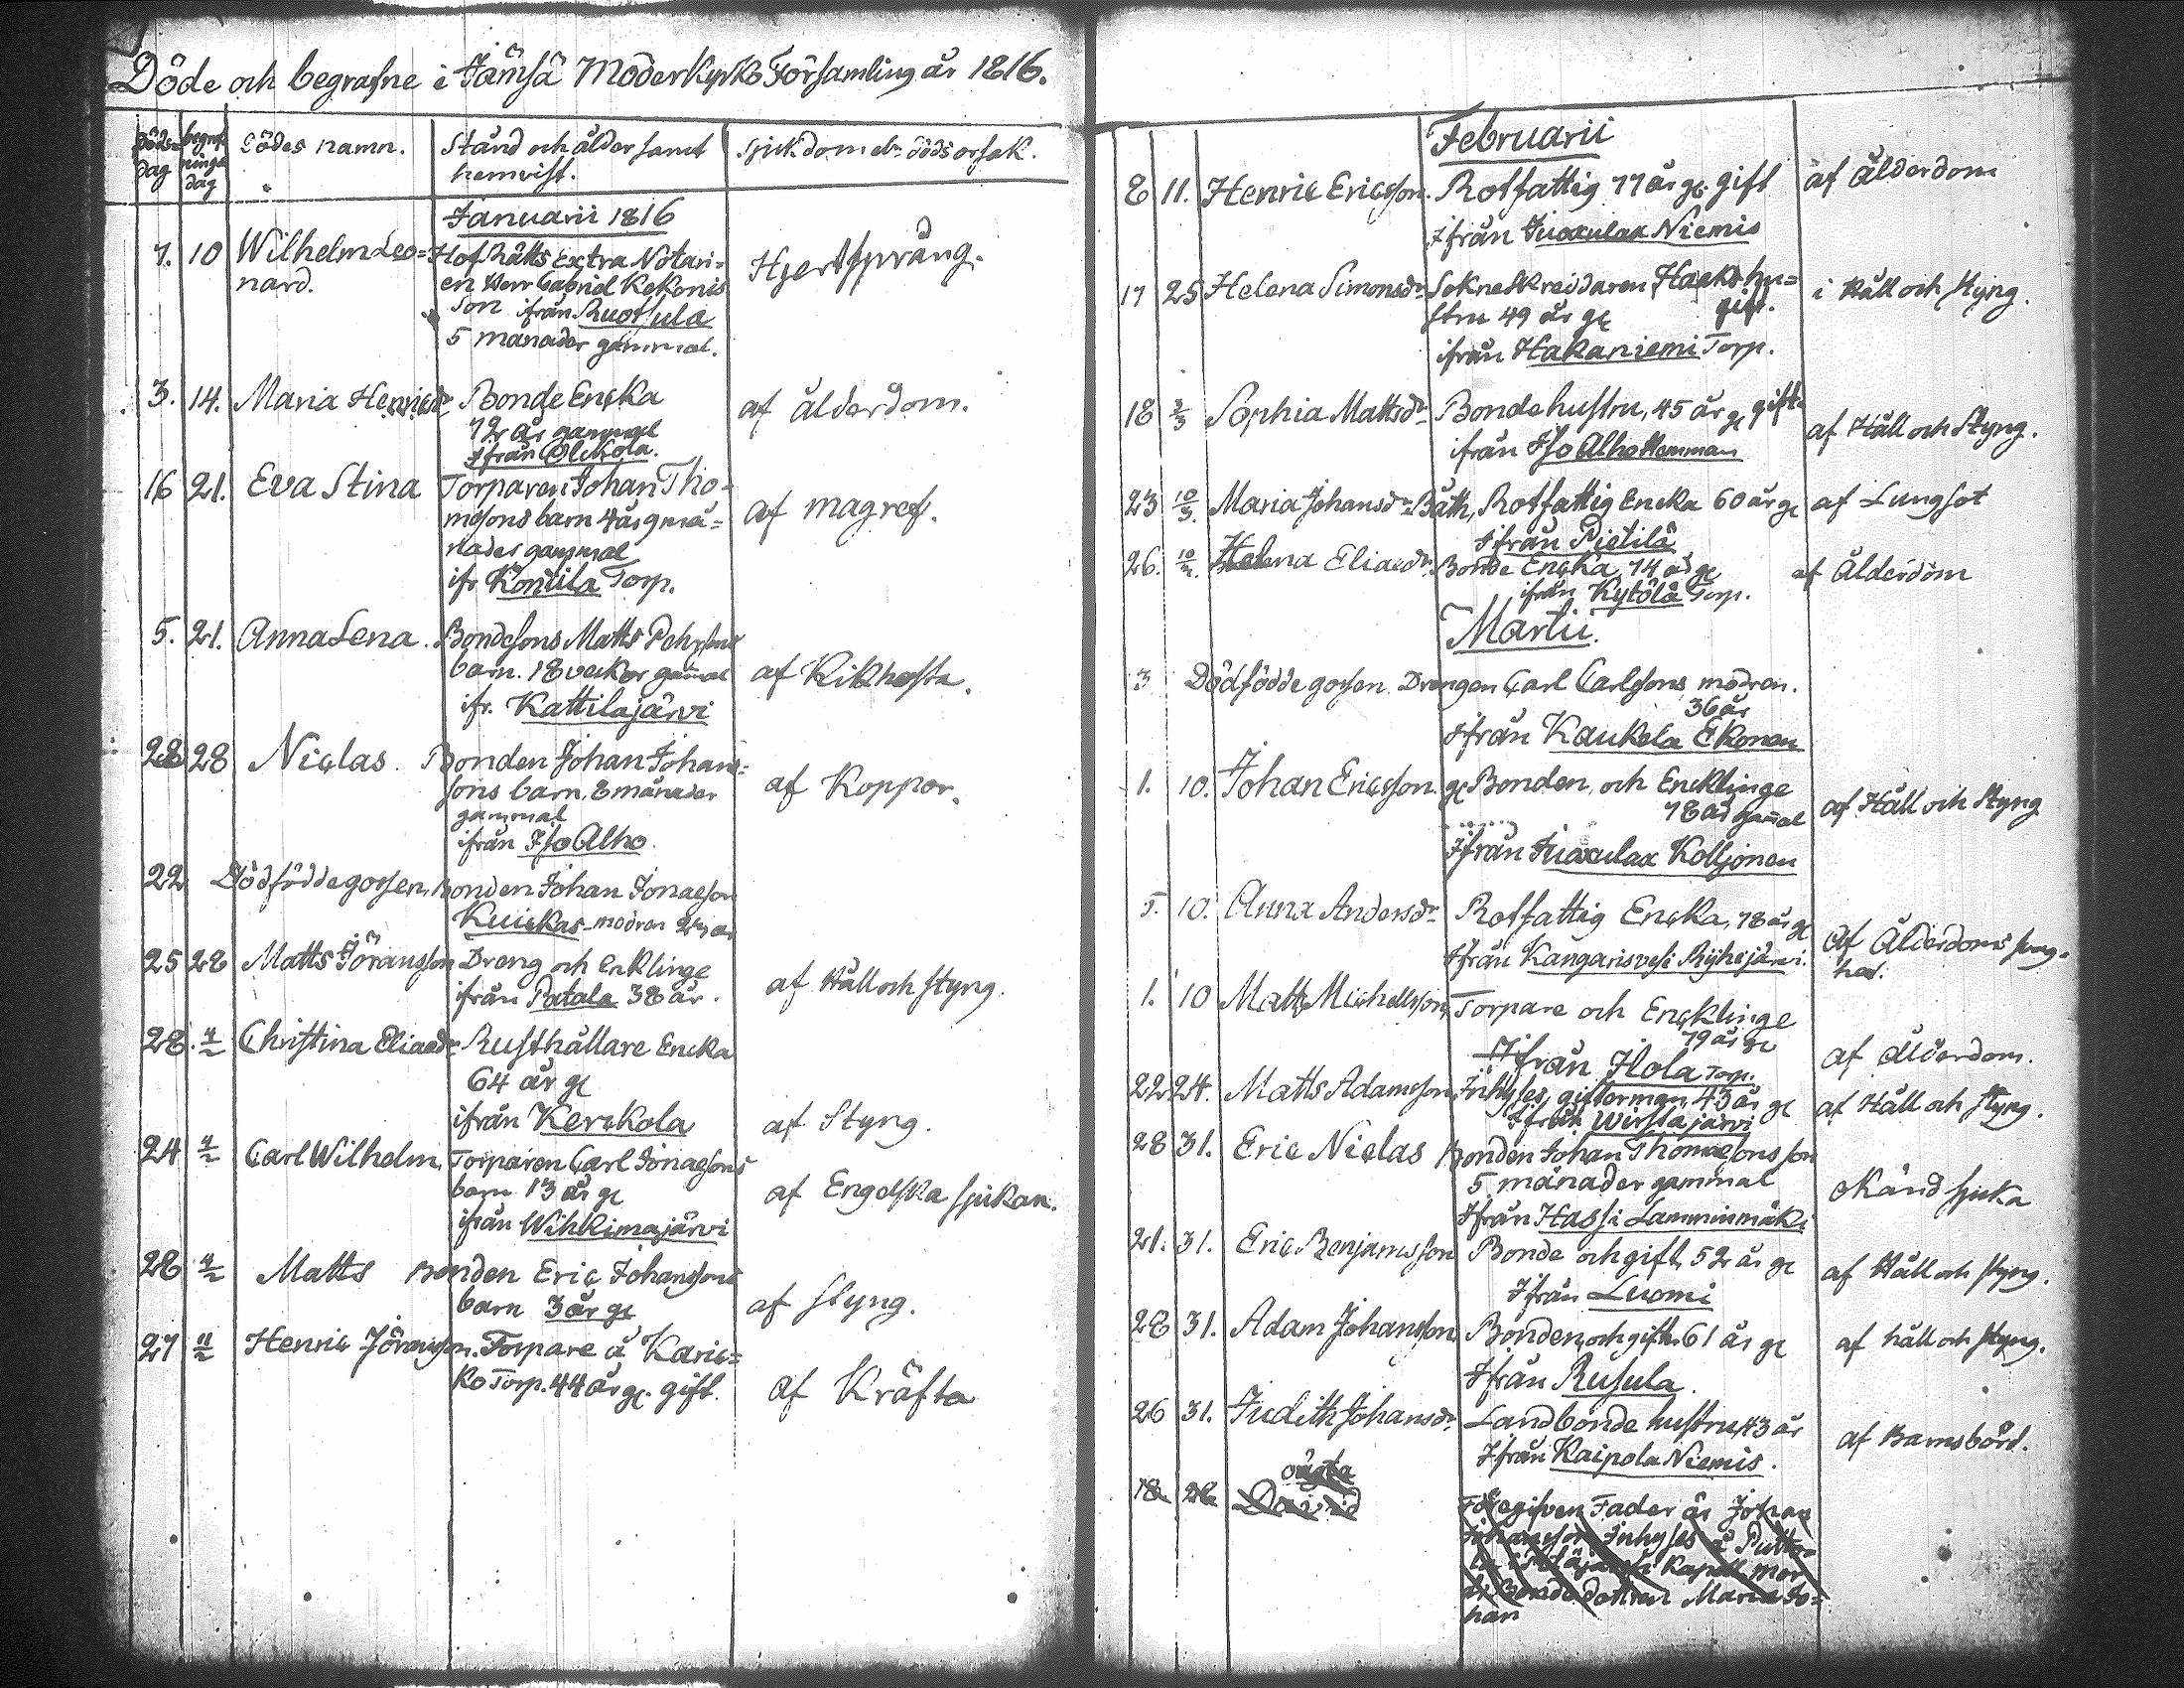 Döde och begrafne i Jämsä Moderkyrko Församling år 1816.
Döds= dag
begraf nings dag
Dödes namn.
Stånd och ålder samt hemvist.
Sjukdom elr dödsorsak.
Januarii 1816
7. 10 Wilhelm Leo= Hof Rätts Extra Notari= Hjertsprång.
nard. en Herr Gabriel Kekonis
Son ifrån Ruotsula
5 månader gammal.
3. 14. Maria Henricsdr Bonde Encka af ålderdom.
72 år gammal
Ifrån Olckola.
16 21. Eva Stina Torparen Johan Tho= af magref.
masons barn 4 år 9 må=
nader gammal
ifr Kontila Torp.
5. 21. Anna Lena. Bondesons Matts Pehrsons
barn. 18 veckor gamal af Kikhosta.
ifr. Kattilajärvi
28 28 Niclas. Bonden Johan Johans= af Koppor.
sons barn, 8 månader
gammal
ifrån Iso Alho.
22 Dödfödde gossen, Bonden Johan Jonaeson
Kuickas modren 27 år
25 28 Matts Jöransson Dreng och enklinge af Håll och styng.
ifrån Patala 38 år.
28. 4/2 Christina Eliaedr Rusthållare Encka
64 år gl
ifrån Kerckola af Styng.
24 4/2 Carl Wilhelm, Torparen Carl Jonaesons
barn 13 år gl af Engelska sjukan.
ifrån Wihkimajärvi
28 4/2 Matts Bonden Eric Johanssons
barn 3 år gl af styng.
27 11/2 Henric Jöransson. Torpare å Karic=
ko Torp. 44 år gl. gift. af Kräfta
Februarii
8 11. Henric Ericsson. Rotfattig 77 år gl. gift af ålderdom
Ifrån Juoxulax Niemis
17 25 Helena Simonsdr Sokneskreddaren Haaks hu= i Håll och styng.
stru 49 år gl gift.
ifrån Hakaniemi Torp.
18 3/3 Sophia Mattsdr Bondehustru, 45 år gl gift. af Håll och Styng.
ifrån Iso Alho Hemman
23 10/3. Maria Johansdr Bäth, Rotfattig Encka 60 år gl af Lungsot
Ifrån Pietilä
26. 10/3. Helena Eliaedr. Bonde Encka 74 år gl af Ålderdom
ifrån Kytölä Torp.
Martii.
3 Dödfödde gossen. Drengen Carl Carlsons modren.
36 år
Ifrån Kaukela Ekonen
1. 10. Johan Ericsson. gl Bonden, och Encklinge af Håll och Styng
78 år gamal
Ifrån Juoxulax Kolljonen
5. 10. Anna Andersdr Rotfattig Encka, 78 år gl Af Ålderdoms svag=
Ifrån Kangarisvesi Rijhijärvi. het.
1. 10 Matts Michellsson, Torpare och Encklinge
79 år gl
Ifrån Ilola Torp. af ålderdom.
22 24. Matts Adamsson, Inhyses, gifterman, 43 år gl af Håll och styng.
Ifrån Wirstajärvi
28 31. Eric Niclas Bonden Johan Thomaesons son
5 månader gammal Okänd sjuka
Ifrån Hassi Lamminmäki
21. 31. Eric Benjamsson Bonde och gift, 52 år gl af Håll och styng.
Ifrån Luomi
28 31. Adam Johansson. Bonden, och gift. 61 år gl af håll och styng.
Ifrån Rusula.
26 31. Judith Johansdr. Landbonde hustru, 43 år af Barnsbörd.
Ifrån Kaipola Niemis.
oägta
18. 28. David Föregifven Fader är Johan
Johansson Inhyses å
Kapell
Bondedottren Maria Jo=
han